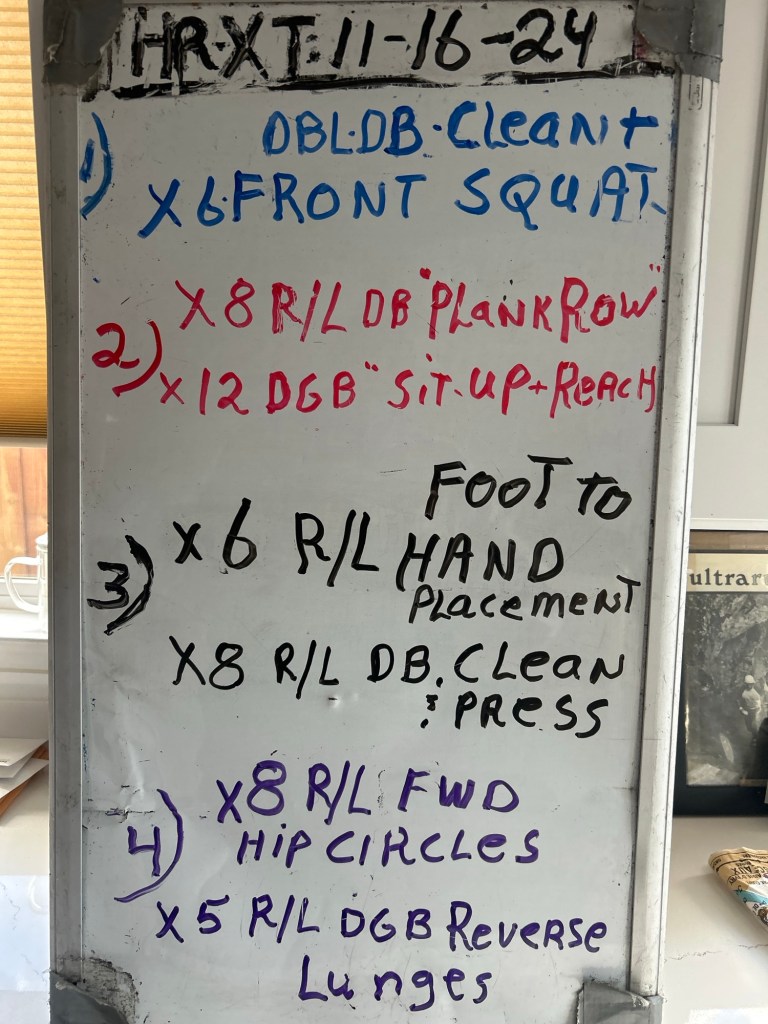 HR·XT: 11-16-24
1) DBL·DB·Clean +
X6·FRONT SQUAT.
2) X8 R/L DB "PLANK ROW"
X12 DGB "SIT-UP + REACH
3) X6 R/L FOOT TO
HAND
PLACEMENT
X8 R/L DB. CLEAN
& PRESS
4) X8 R/L FWD
HIP CIRCLES
X5 R/L DGB Reverse
Lunges
ultrar